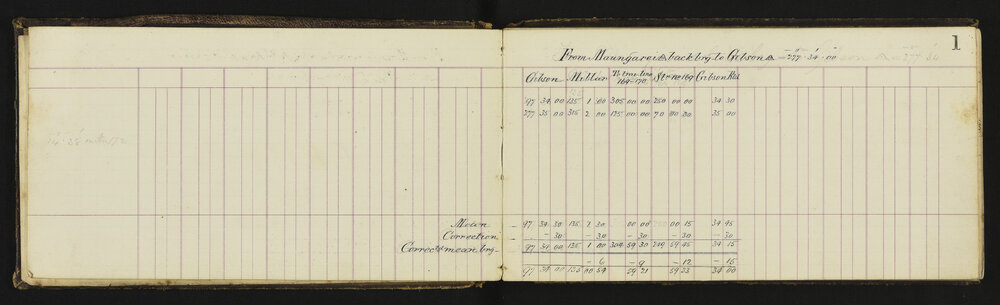 1
From Maungarei △ back brg to Gibson △ - 277° 34' 00"
Gibson Millar To true line 169-170 Stn 169 Gibson Rd.
97 34 00 135 1 00 305 00 00 250 00 00 34 30
277 35 00 315 2 00 125 00 00 70 00 30 35 00
Mean - 97 34 30 135 1 30 00 00 00 15 34 45
Correction - 30 - 30 - 30 - 30 - 30
Correct'd mean brg - 97 34 00 135 1 00 304 59 30 249 59 45 34 15
- 6 - 9 - 12 - 15
97 34 00 135 00 54 59 21 59 33 34 00